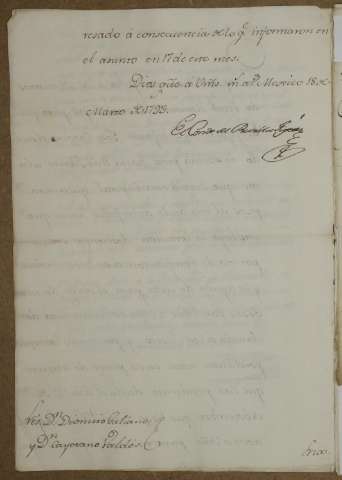 resado á consecuencia de lo q.^e informaron en
el asunto en 17 de este mes.
Dios gūe á Vms. m.^s a.^s Mexico 18 de
Marzo de 1793.
El Conde de Revilla Gigedo
S.res D.^n Dionisio Galiano,
y D.^n Cayetano Valdés.